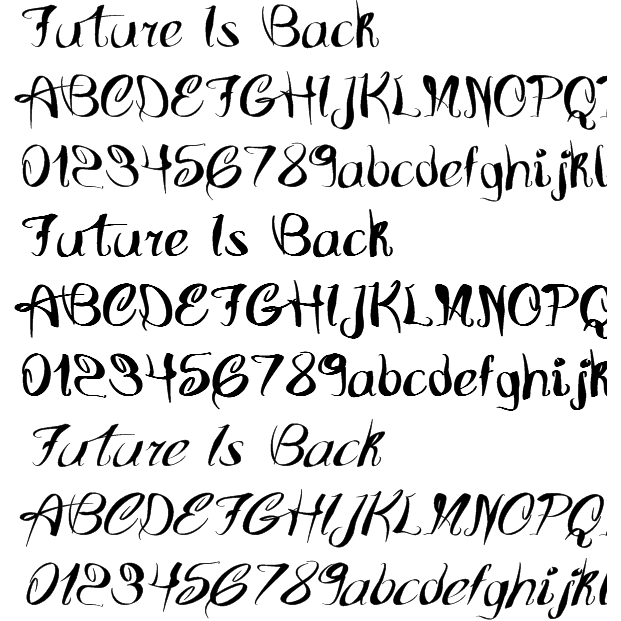 Future Is Back
ABCDEFGHIJKLMNOPQ
0123456789abcdefghijkl
Future Is Back
ABCDEFGHIJKLMNOPQ
0123456789abcdefghijk
Future Is Back
ABCDEFGHIJKLMNOPQ
0123456789abcdefghijkl